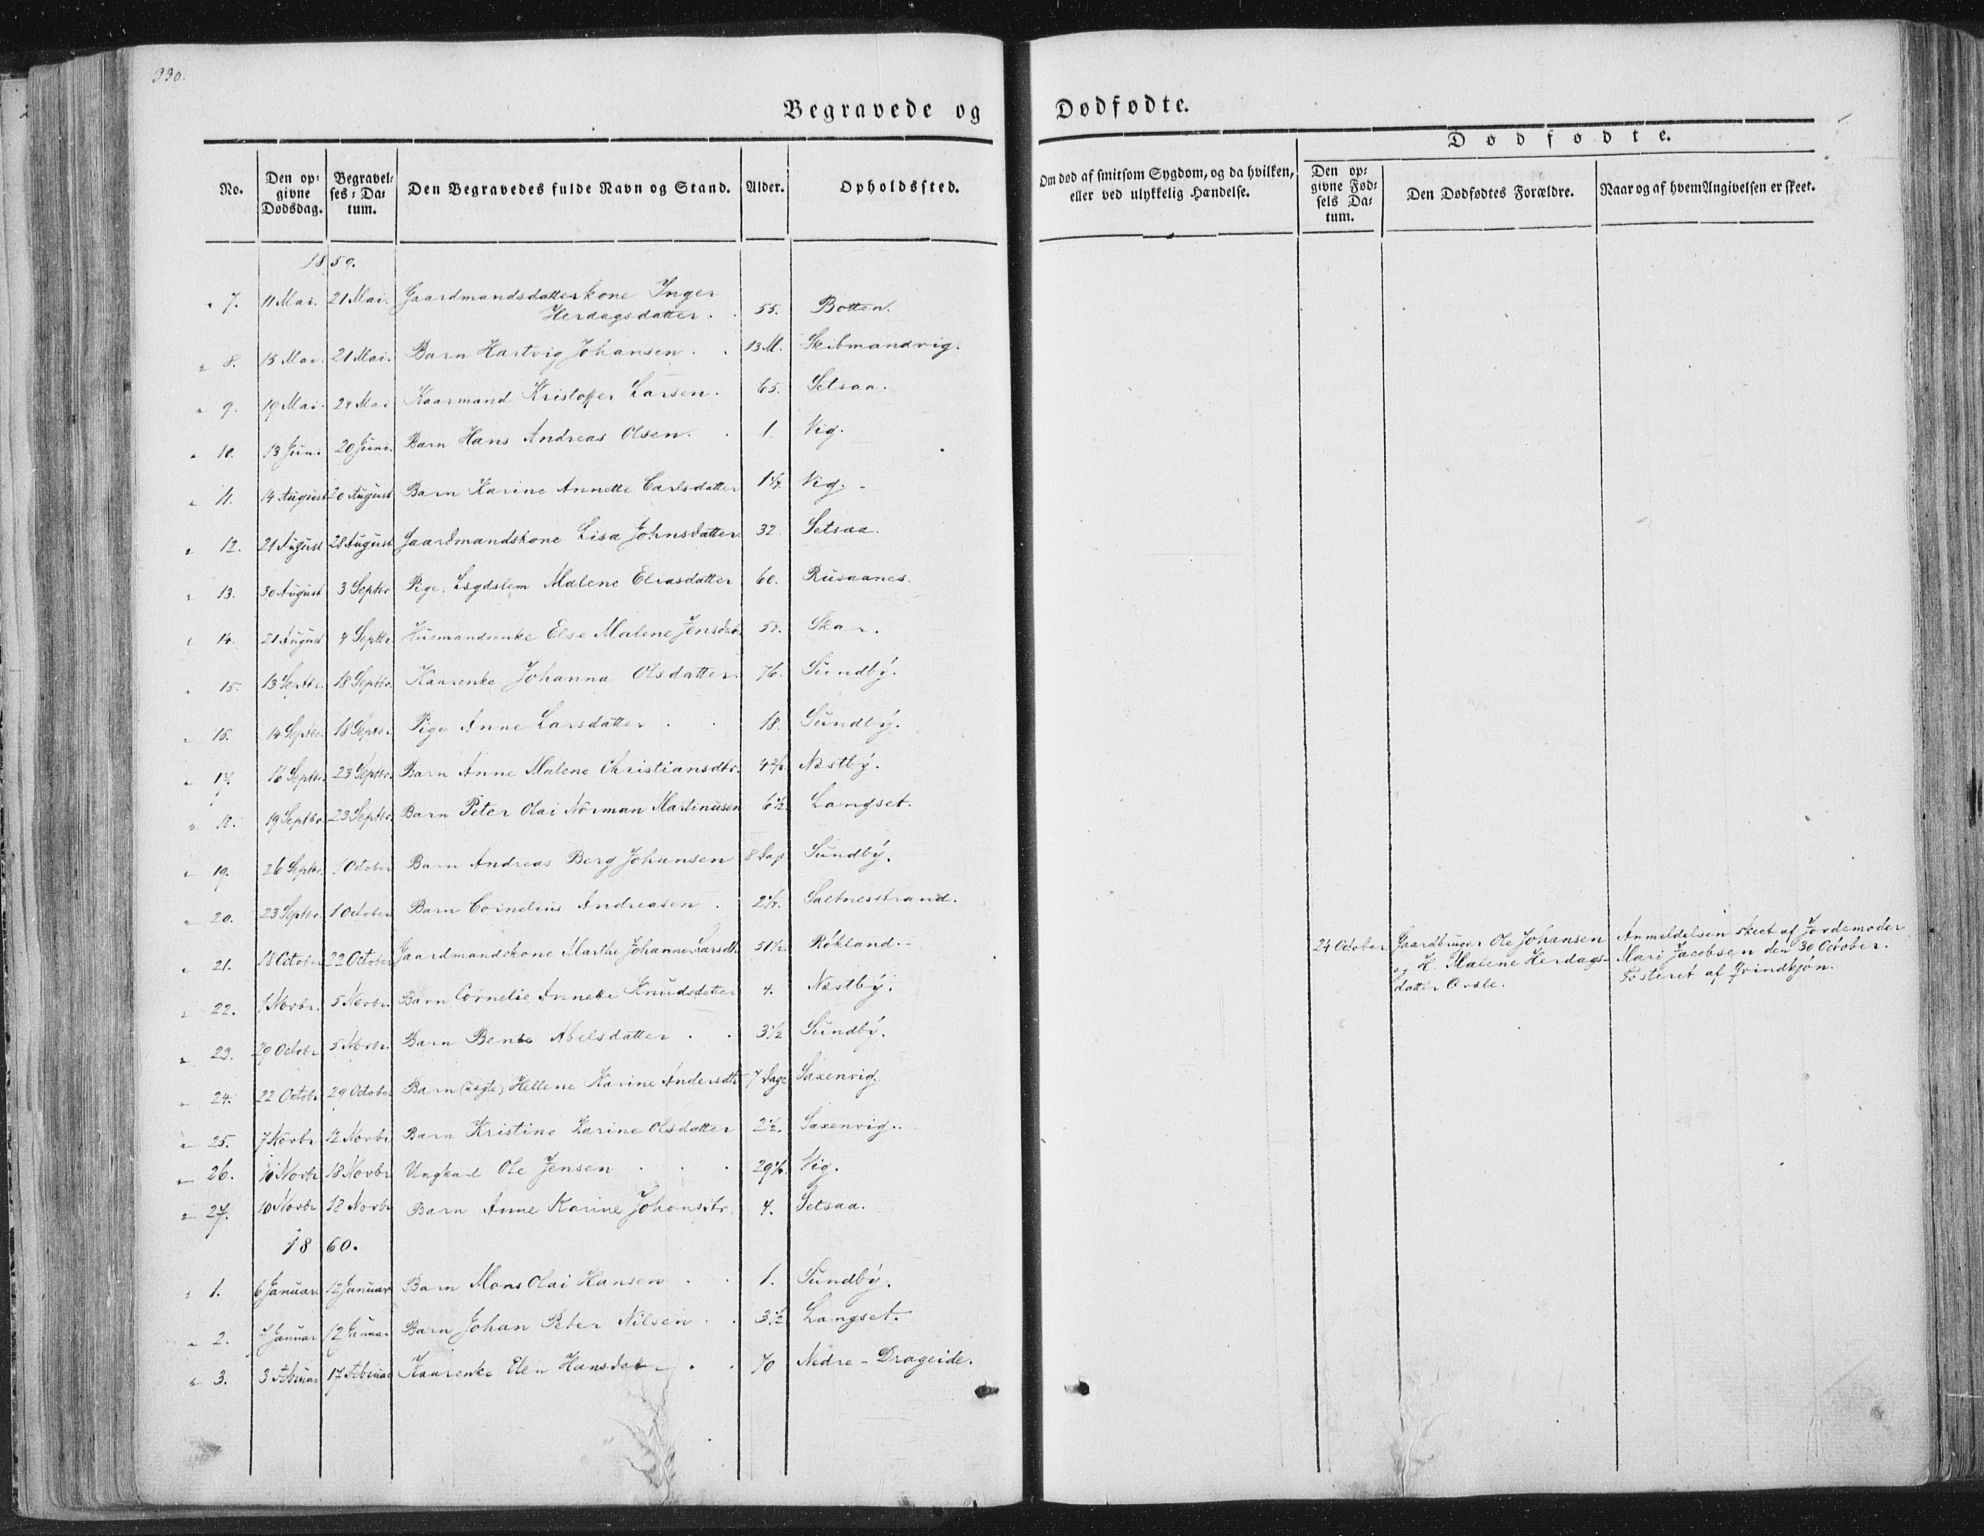 330.
Begravede og Dødfødte.
Dødfødte.
No.
Den opgivne Dødsdag.
Begravelses-Datum.
Den Begravedes fulde Navn og Stand.
Alder.
Opholdssted.
Om død af smitsom Sygdom, og da hvilken, eller ved ulykkelig Hændelse.
Den opgivne Fødsels Datum.
Den Dødfødtes Forældre.
Naar og af hvem Angivelsen er skeet.
1859.
" 7. 11 Mai. 21 Mai. Gaardmandskone Inger
Herdagsdatter. 55. Botten.
" 8. 15 Mai. 21 Mai. Barn Hartvig Johansen. 13 M. Skibmandvig.
" 9. 19 Mai. 24 Mai Kaarmand Kristofer Larsen. 65. Setsaa.
" 10. 13 Juni 20 Juni. Barn Hans Andreas Olsen. 1. Vig.
" 11. 14 August 20 August Barn Karine Annette Carlsdatter Vig.
" 12. 21 August 28 August Gaardmandskone Lisa Johnsdatter. 32 Setsaa.
" 13. 30 August 3 Septbr Pige, Lægdslem Malene Eliasdatter 60. Rusaanes.
" 14. 21 August 4 Septbr Husmandsenke Else Malene Jensdatr 57. Skar.
" 15. 13 Septbr. 18 Septbr. Kaarenke Johanna Olsdatter. 76. Sundby.
" 16. 14 Septbr. 18 Septbr. Pige Anne Larsdatter 18. Sundby.
" 17. 16 Septbr. 23 Septbr. Barn Anne Malene Christiansdtr. Næstby.
" 18. 19 Septbr. 23 Septbr. Barn Peter Olai Nörman Martinusen 6½ Langset.
" 19. 26 Septbr. 1 October Barn Andreas Berg Johansen 8 Dage Sundby.
" 20. 23 Septbr. 1 October Barn Cornelius Andreasen. Saltnesstrand.
" 21. 18 October 22 October Gaardmandskone Marthe Johanne Larsdtr 51½. Røkland.
24 October Gaardbruger Ole Johansen
og H. Malene Herdags-
datter
Anmeldelsen skeet af Jordemoder
Mari Jacobsen den 30 October.
Fosteret af Qvindkjøn.
" 22. 1 Novbr. 5 Novbr. Barn Cornelie Annebe Knudsdatter 4. Næstby.
" 23. 29 Octobr 5 Novbr. Barn Bente Abelsdatter 3½ Sundby.
" 24. 22 Octobr 29 October Barn (uægte) Hellene Karine Andersdtr 7 Dage Saxenvig.
" 25. 7 Novbr 12 Novbr Barn Kristine Karine Olsdatter 2½. Saxenvig.
" 26. 10 Novbr 18 Novbr Ungkarl Ole Jensen Vig.
" 27. 10 Novbr 18 Novbr Barn Anne Karine Johansdtr. 4. Setsaa.
1860.
" 1. 6 Januar. 12 Januar Barn Mons Olai Hansen 1. Sundby.
" 2. 7 Januar 12 Januar Barn Johan Peter Nilsen 3½ Langset.
" 3. 3 Februar 17 Februar Kaarenke Elen Hansdatr 70 Nedre-Drageide.